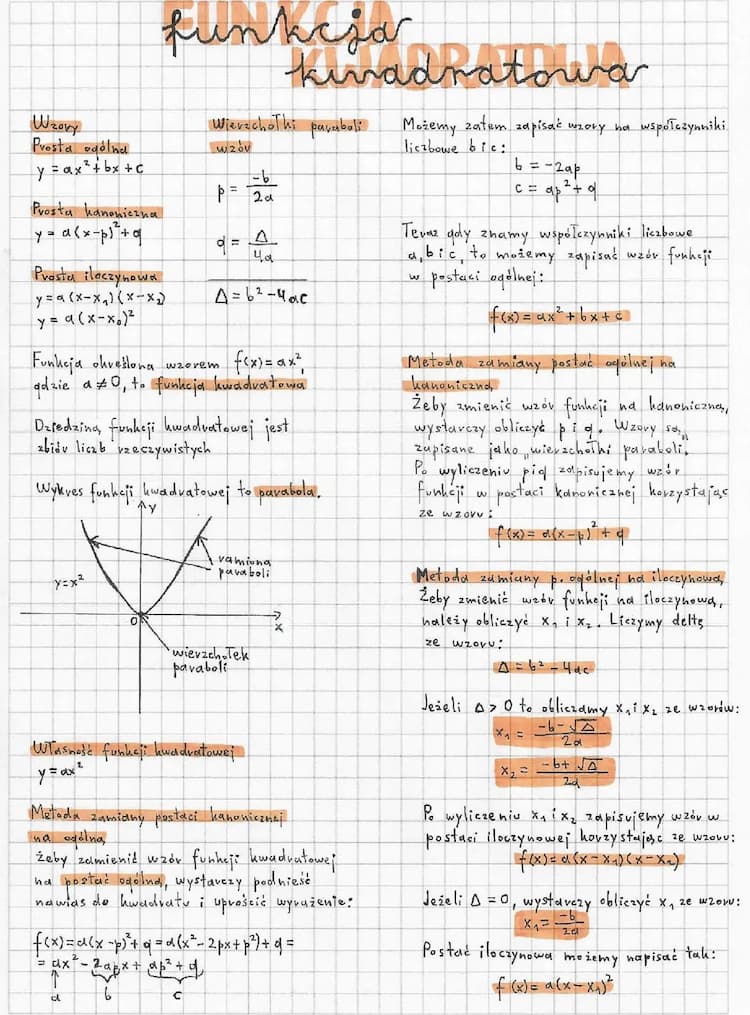 FUNKCJA
funkcja
KWADRATOWA
kwadratowa
Wzory
Prosta ogólna
y = ax² + bx + c
Prosta kanoniczna
y = a(x-p)² + q
Prosta iloczynowa
y = a(x-x₁)(x-x₂)
y = a(x-x₀)²
Wierzchołki paraboli
wzór
p = -b/2a
q = Δ/4a
Δ = b² - 4ac
Funkcja określona wzorem f(x) = ax²,
gdzie a ≠ 0, to funkcja kwadratowa
Dziedziną funkcji kwadratowej jest
zbiór liczb rzeczywistych
Wykres funkcji kwadratowej to parabola.
y
y=x²
ramiona
paraboli
0
x
wierzchołek
paraboli
Własność funkcji kwadratowej
y = ax²
Metoda zamiany postaci kanonicznej
na ogólną
żeby zamienić wzór funkcji kwadratowej
na postać ogólną, wystarczy podnieść
nawias do kwadratu i uprościć wyrażenie:
f(x) = a(x-p)² + q = a(x² - 2px + p²) + q =
= ax² - 2apx + ap² + q
a b c
Możemy zatem zapisać wzory na współczynniki
liczbowe b i c:
b = -2ap
c = ap² + q
Teraz gdy znamy współczynniki liczbowe
a, b i c, to możemy zapisać wzór funkcji
w postaci ogólnej:
f(x) = ax² + bx + c
Metoda zamiany postać ogólnej na
kanoniczną
Żeby zmienić wzór funkcji na kanoniczną,
wystarczy obliczyć p i q. Wzory są
zapisane jako „wierzchołki paraboli".
Po wyliczeniu p i q zapisujemy wzór
funkcji w postaci kanonicznej korzystając
ze wzoru:
f(x) = a(x-p)² + q
Metoda zamiany p. ogólnej na iloczynową
Żeby zmienić wzór funkcji na iloczynową,
należy obliczyć x₁ i x₂. Liczymy deltę
ze wzoru:
Δ = b² - 4ac
Jeżeli Δ > 0 to obliczamy x₁ i x₂ ze wzorów:
x₁ = -b-√Δ/2a
x₂ = -b+√Δ/2a
Po wyliczeniu x₁ i x₂ zapisujemy wzór w
postaci iloczynowej korzystając ze wzoru:
f(x) = a(x-x₁)(x-x₂)
Jeżeli Δ = 0, wystarczy obliczyć x₁ ze wzoru:
x₁ = -b/2a
Postać iloczynowa możemy napisać tak:
f(x) = a(x-x₁)²